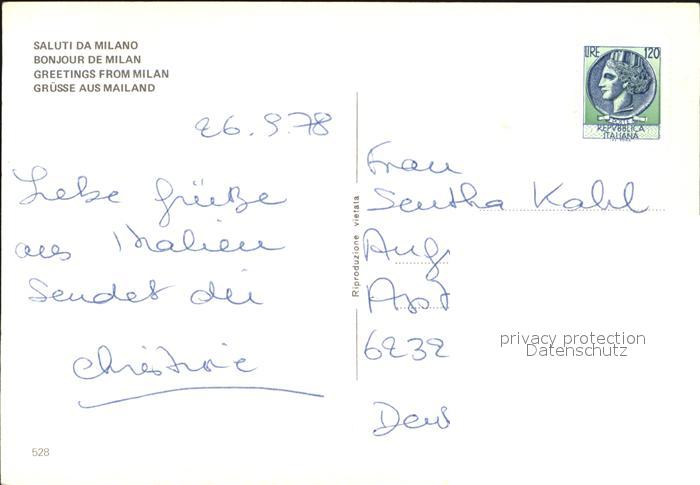 SALUTI DA MILANO
BONJOUR DE MILAN
GREETINGS FROM MILAN
GRÜSSE AUS MAILAND
LIRE 120
POSTE
REPVBBLICA
ITALIANA
26.9.78
Liebe Grüße
aus Italien
Sendet dir
Christine
Riproduzione vietata
Frau
Sentha Kahl
Aug
6232
privacy protection
Datenschutz
528